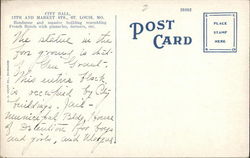 CITY HALL,
12TH AND MARKET STS., ST. LOUIS, MO.
Handsome and massive building resembling
French Hotels with pinnacles, dormers, etc.
2
39862
POST CARD
PLACE
STAMP
HERE
The statue in the
fore ground is that
of Gen. Grant.
This entire block
is occupied by City
buildings. Jail -
Municipal Bldg, House
of Detention for boys
and girls, and Morgue.